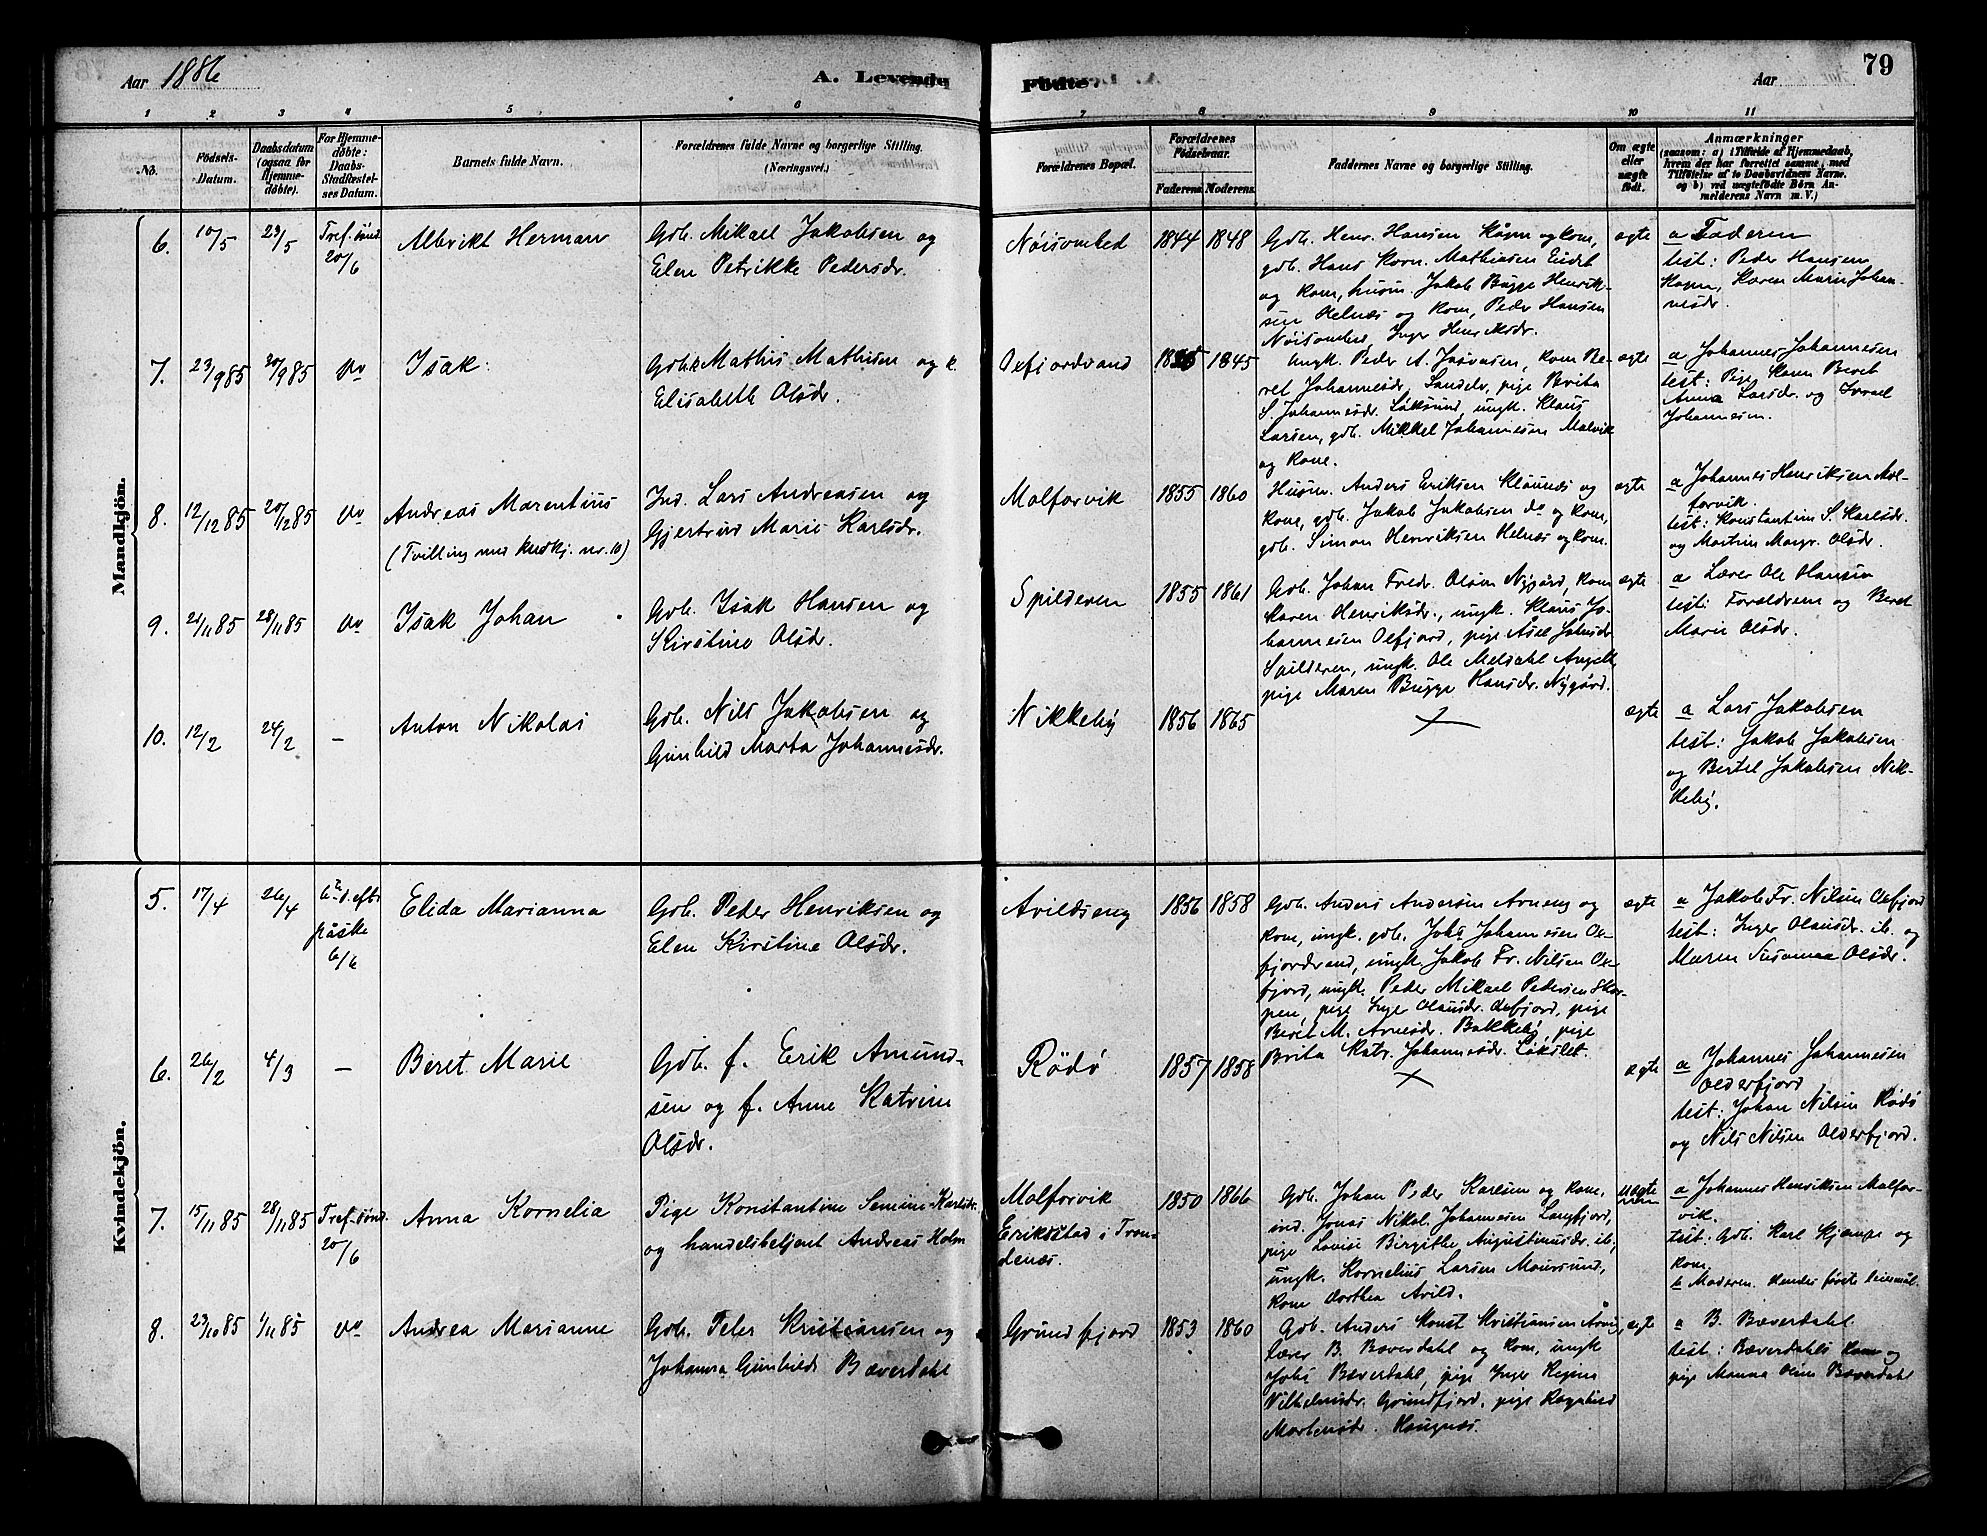 Aar 1886
A. Levende
Fødte.
Aar
79
1 2 3 4 5 6 7 8 9 10 11
No.
Fødsels-
Datum.
Daabsdatum
(ogsaa for
Hjemme-
døbte).
For Hjemme-
døbte:
Daabs-
Stadfæstel-
ses Datum.
Barnets fulde Navn.
Forældrenes fulde Navne og borgerlige Stilling.
(Næringsvei.)
Forældrenes Bopæl.
Forældrenes
Fødselsaar.
Faderens. Moderens.
Faddernes Navne og borgerlige Stilling.
Om ægte
eller
uægte
født.
Anmærkninger
(saasom: a) i Tilfælde af Hjemmedaab,
hvem der har forrettet samme, med
Tilføielse af to Daabsvidners Navne,
og b) ved uægtefødte Børn An-
melderens Navn m. V.)
Mandkjön.
6. 10/5 23/5 Tref. sönd. 20/6
Albrikt Herman
Gdb. Mikael Jakobsen og
Elen Petrikke Pedersdr.
Nöisomhed 1844 1848
Gdb. Henr. Hansen Kågen og kone,
gdb. Hans Korn. Mathiasen Eidet
og kone, husm. Jakob Bugge Henrik-
sen Helnæs og kone, Peder Hansen
Nöisomhed, Inger Henriksdr.
ægte
a Faderen
test: Peder Hansen
Kågen, Karen Marie Johan-
nesdr.
7. 23/9 85 20/9 85 do
Isak.
Gdbk Mathis Mathisen og k.
Elisabeth Olsdr.
Oefjordvand 1845
Ungk. Peder A. Josvasen, kone Be-
ret Johannesdr. Sandelv, pige Berita
S. Johannesdr. Löksund, ungk. Klaus
Larsen, gdb. Mikkel Johannesen Malvik
og kone.
ægte
a Johannes Johannesen
test: Pige Karen Beret
Anna Larsdr. og Israel
Johannesen.
8. 12/12 85 20/12 85 do
Andreas Marentius
(Tvilling med kvdkj. nr. 10)
Ind. Lars Andreasen og
Gjertrud Marie Karlsdr.
Malforvik 1855 1860
Husm. Anders Eriksen Klaunæs og
kone, gdb. Jakob Jakobsen do og kone,
gdb. Simon Henriksen Helnæs og kone.
ægte
a Johannes Henriksen Mal-
forvik.
test: Konstantine S. Karlsdr.
og Martin Margr. Olsdr.
9. 24/11 85 28/11 85 do
Isak Johan
Gdb. Isak Hansen og
Kirstine Olsdr.
Spilderen 1855 1861
Gdb. Johan Fredr. Olsen Nygård, kone
Karen Henriksdr., ungk. Klaus Jo-
hannesen Oefjord, pige Åsel Johnsdr.
Spilderen, ungk. Ole Meldahl Angell,
pige Maren Bugge Hansdr. Nygård.
ægte
a Lærer Ole Hansen
test: Forældrene og Beret
Marie Olsdr.
10. 12/2 24/2 —
Anton Nikolai
Gdb. Nils Jakobsen og
Gunhild Marta Johannesdr.
Nikkeby 1856 1865
ægte
a Lars Jakobsen
test: Jakob Jakobsen
og Bertel Jakobsen Nik-
keby.
Kvindekjön.
5. 17/4 26/4 6te s. eft. påske 6/6
Elida Marianna
Gdb. Peder Henriksen og
Elen Kirstine Olsdr.
Avildseng 1856 1858
Gdb. Anders Andersen Arneng og
kone, ungk. gdb. Johs Johannesen Oe-
fjordvand, ungk. Jakob Fr. Nilsen Oe-
fjord, ungk. Peder Mikael Pedersen Skar-
pen, pige Inger Olausdr. Oefjord, pige
Beret M. Arnesdr. Bakkeby, pige
Brita Katr. Johannesdr. Lökslet.
ægte
a Jakob Fr. Nilsen Oefjord
test: Inger Olausdr. ib. og
Maren Susannaa Olsdr.
6. 26/2 4/3 —
Beret Marie
Gdb. f. Erik Amund-
sen og f. Anne Katrine
Olsdr.
Rödö 1857 1858
ægte
a Johannes Johannesen
Olderfjord
test: Johan Nilsen Rödö
og Nils Nilsen Olderfjord.
7. 15/11 85 28/11 85 Tref. sönd. 20/6
Anna Kornelia
Pige Konstantine Semine Karlsdr.
og handelsbetjent Andreas Holm
Malforvik
Erikstad i Tron-
denæs.
1850 1866
Gdb. Johan Peder Karlsen og kone,
ind. Jonas Nikol. Johannesen Langfjord,
pige Lovise Birgithe Augustinusdr. ib.,
ungk. Kornelius Larsen Maursund,
kone Dorthea Avild.
uægte
a Johannes Henriksen Malfor-
vik.
test: Gdb. Karl Kjempe og
kone
b Moderen. Hendes förste leiermål.
8. 23/10 85 1/11 85 do
Andrea Marianne
Gdb. Peter Kristiansen og
Johanna Gunhilds Bæverdahl
Grundfjord 1853 1860
Gdb. Anders Konst Kristiansen Årvig,
lærer B. Bæverdahl og kone, ungk
Johs Bæverdahl, pige Inger Regine
Vilhelmsdr. Grundfjord, pige Ragnhild
Mortensdr. Haugnæs.
ægte
a B. Bæverdahl
test: Bæverdahls kone og
pige Manna Oline Bæverdahl